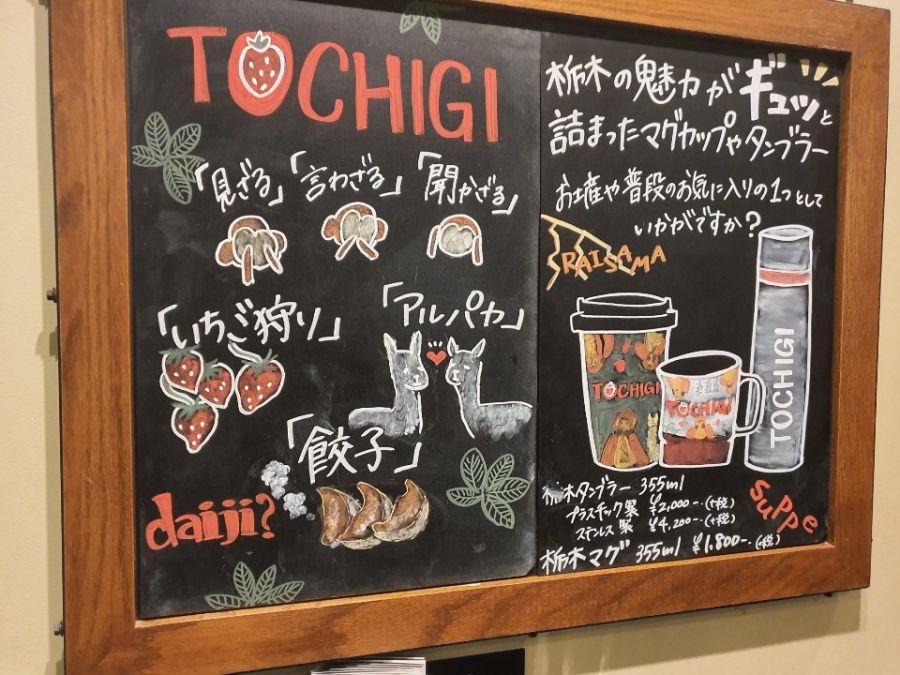 TOCHIGI
「見ざる」「言わざる」「聞かざる」
「いちご狩り」
「アルパカ」
「餃子」
daiji?
栃木の魅力がギュッと
詰まったマグカップやタンブラー
お土産や普段のお気に入りの1つとして
いかがですか?
RAISAMA
TOCHIGI
TOCHIGI
TOCHIGI
Suppe
栃木タンブラー 355ml
プラスチック製 ¥2,000-.(+税)
ステンレス製 ¥4,200-.(+税)
栃木マグ 355ml ¥1,800-.(+税)